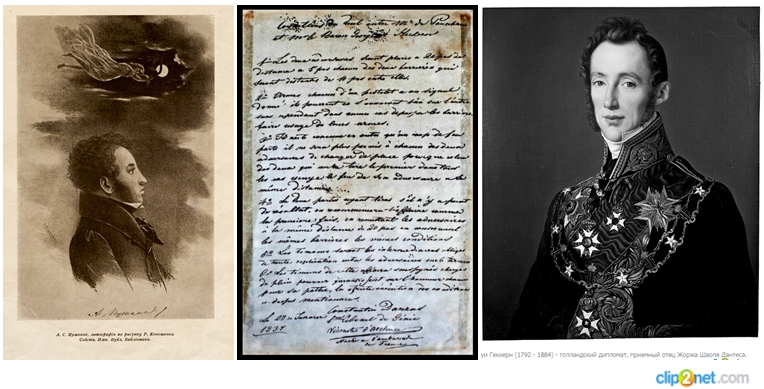 А. С. Пушкин, автография по рисунку
Conditions du duel entre Mr de
et Mr le Baron Georges Hekeren
1º Les deux adversaires seront placés à 20 pas de
distance à 5 pas chacun des deux barrières qui
seront distantes de 10 pas entre elles.
2º Armés chacun d'un pistolet à un signal
donné ils pourront en s'avançant l'un sur l'autre
sans cependant dans aucun cas dépasser les barrières
faire usage de leurs armes.
3º Il reste convenu en outre qu'un coup de feu
parti il ne sera plus permis à chacun des deux
adversaires de changer de place pour que celui
des deux qui aura tiré le premier dans tous
les cas essuye le feu de son adversaire à la
même distance.
4º Les deux parties ayant tiré s'il n'y a point
de résultat, on recommencera l'affaire comme
la première fois, en remettant les adversaires
à la même distance de 20 pas en conservant
les mêmes barrières les mêmes conditions.
5º Les témoins seront les intermédiaires obligés
de toute explication entre les adversaires sur le terrain.
6º Les témoins de cette affaire soussignés chargés
de pleins pouvoirs garantissent sur l'honneur chacun
pour sa partie, la stricte exécution des conditions
ci-dessus mentionnées.
Constantin Danzas
Le 27 Janvier
1837
Lieutenant Colonel du Génie
Vicomte d'Archiac
Attaché à l'ambassade
de France
уи Геккерн (1792 - 1884) - голландский дипломат, приемный отец Жоржа Шарля Дантеса.
clip2net.com